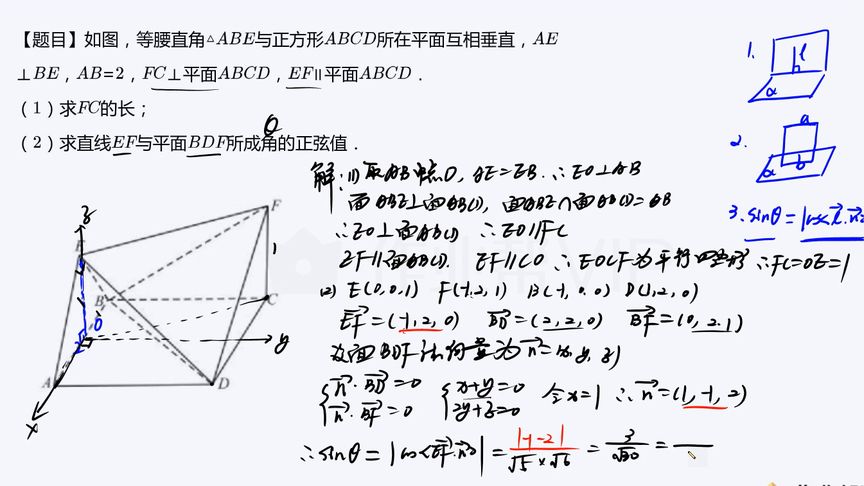 【题目】如图，等腰直角△ABE与正方形ABCD所在平面互相垂直，AE
⊥BE，AB=2，FC⊥平面ABCD，EF∥平面ABCD．
（1）求FC的长；
（2）求直线EF与平面BDF所成角的正弦值．
θ
1. l b α
2. a b α
3. sinθ=|cos<l,n>
z E F 1 B C O y A D x
解:(1)取AB中点O, AE=EB. ∴EO⊥AB
面ABE⊥面ABCD, 面ABE∩面ABCD=AB
∴EO⊥面ABCD ∴EO∥FC
EF∥面ABCD. EF∥CO ∴EOCF为平行四边形 ∴FC=OE=1
(2) E(0,0,1) F(-1,2,1) B(-1,0,0) D(1,2,0)
EF=(-1,2,0) BD=(2,2,0) BF=(0,2,1)
设面BDF法向量为n=(x,y,z)
{n·BD=0 {x+y=0 令x=1 ∴n=(1,-1,2)
n·BF=0 2y+z=0
∴sinθ=|cos<EF,n>|=|-1-2|/√5×√6=3/√30=